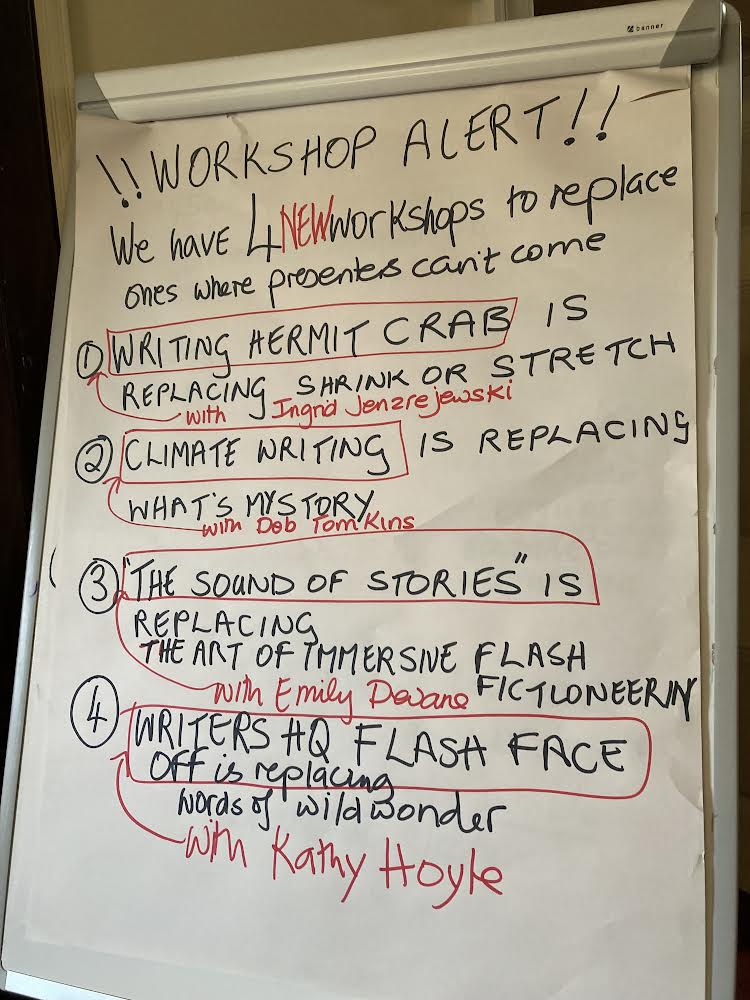 banner
!! WORKSHOP ALERT!!
We have 4 NEW workshops to replace
ones where presenters can't come
① WRITING HERMIT CRAB IS
REPLACING SHRINK OR STRETCH
with Ingrid Jenzrejewski
② CLIMATE WRITING IS REPLACING
WHAT'S MY STORY
with Deb Tomkins
③ "THE SOUND OF STORIES" IS
REPLACING
THE ART OF IMMERSIVE FLASH
with Emily Devane FICTIONEERIN
④ WRITERS HQ FLASH FACE
OFF is replacing
words of wild wonder
with Kathy Hoyle